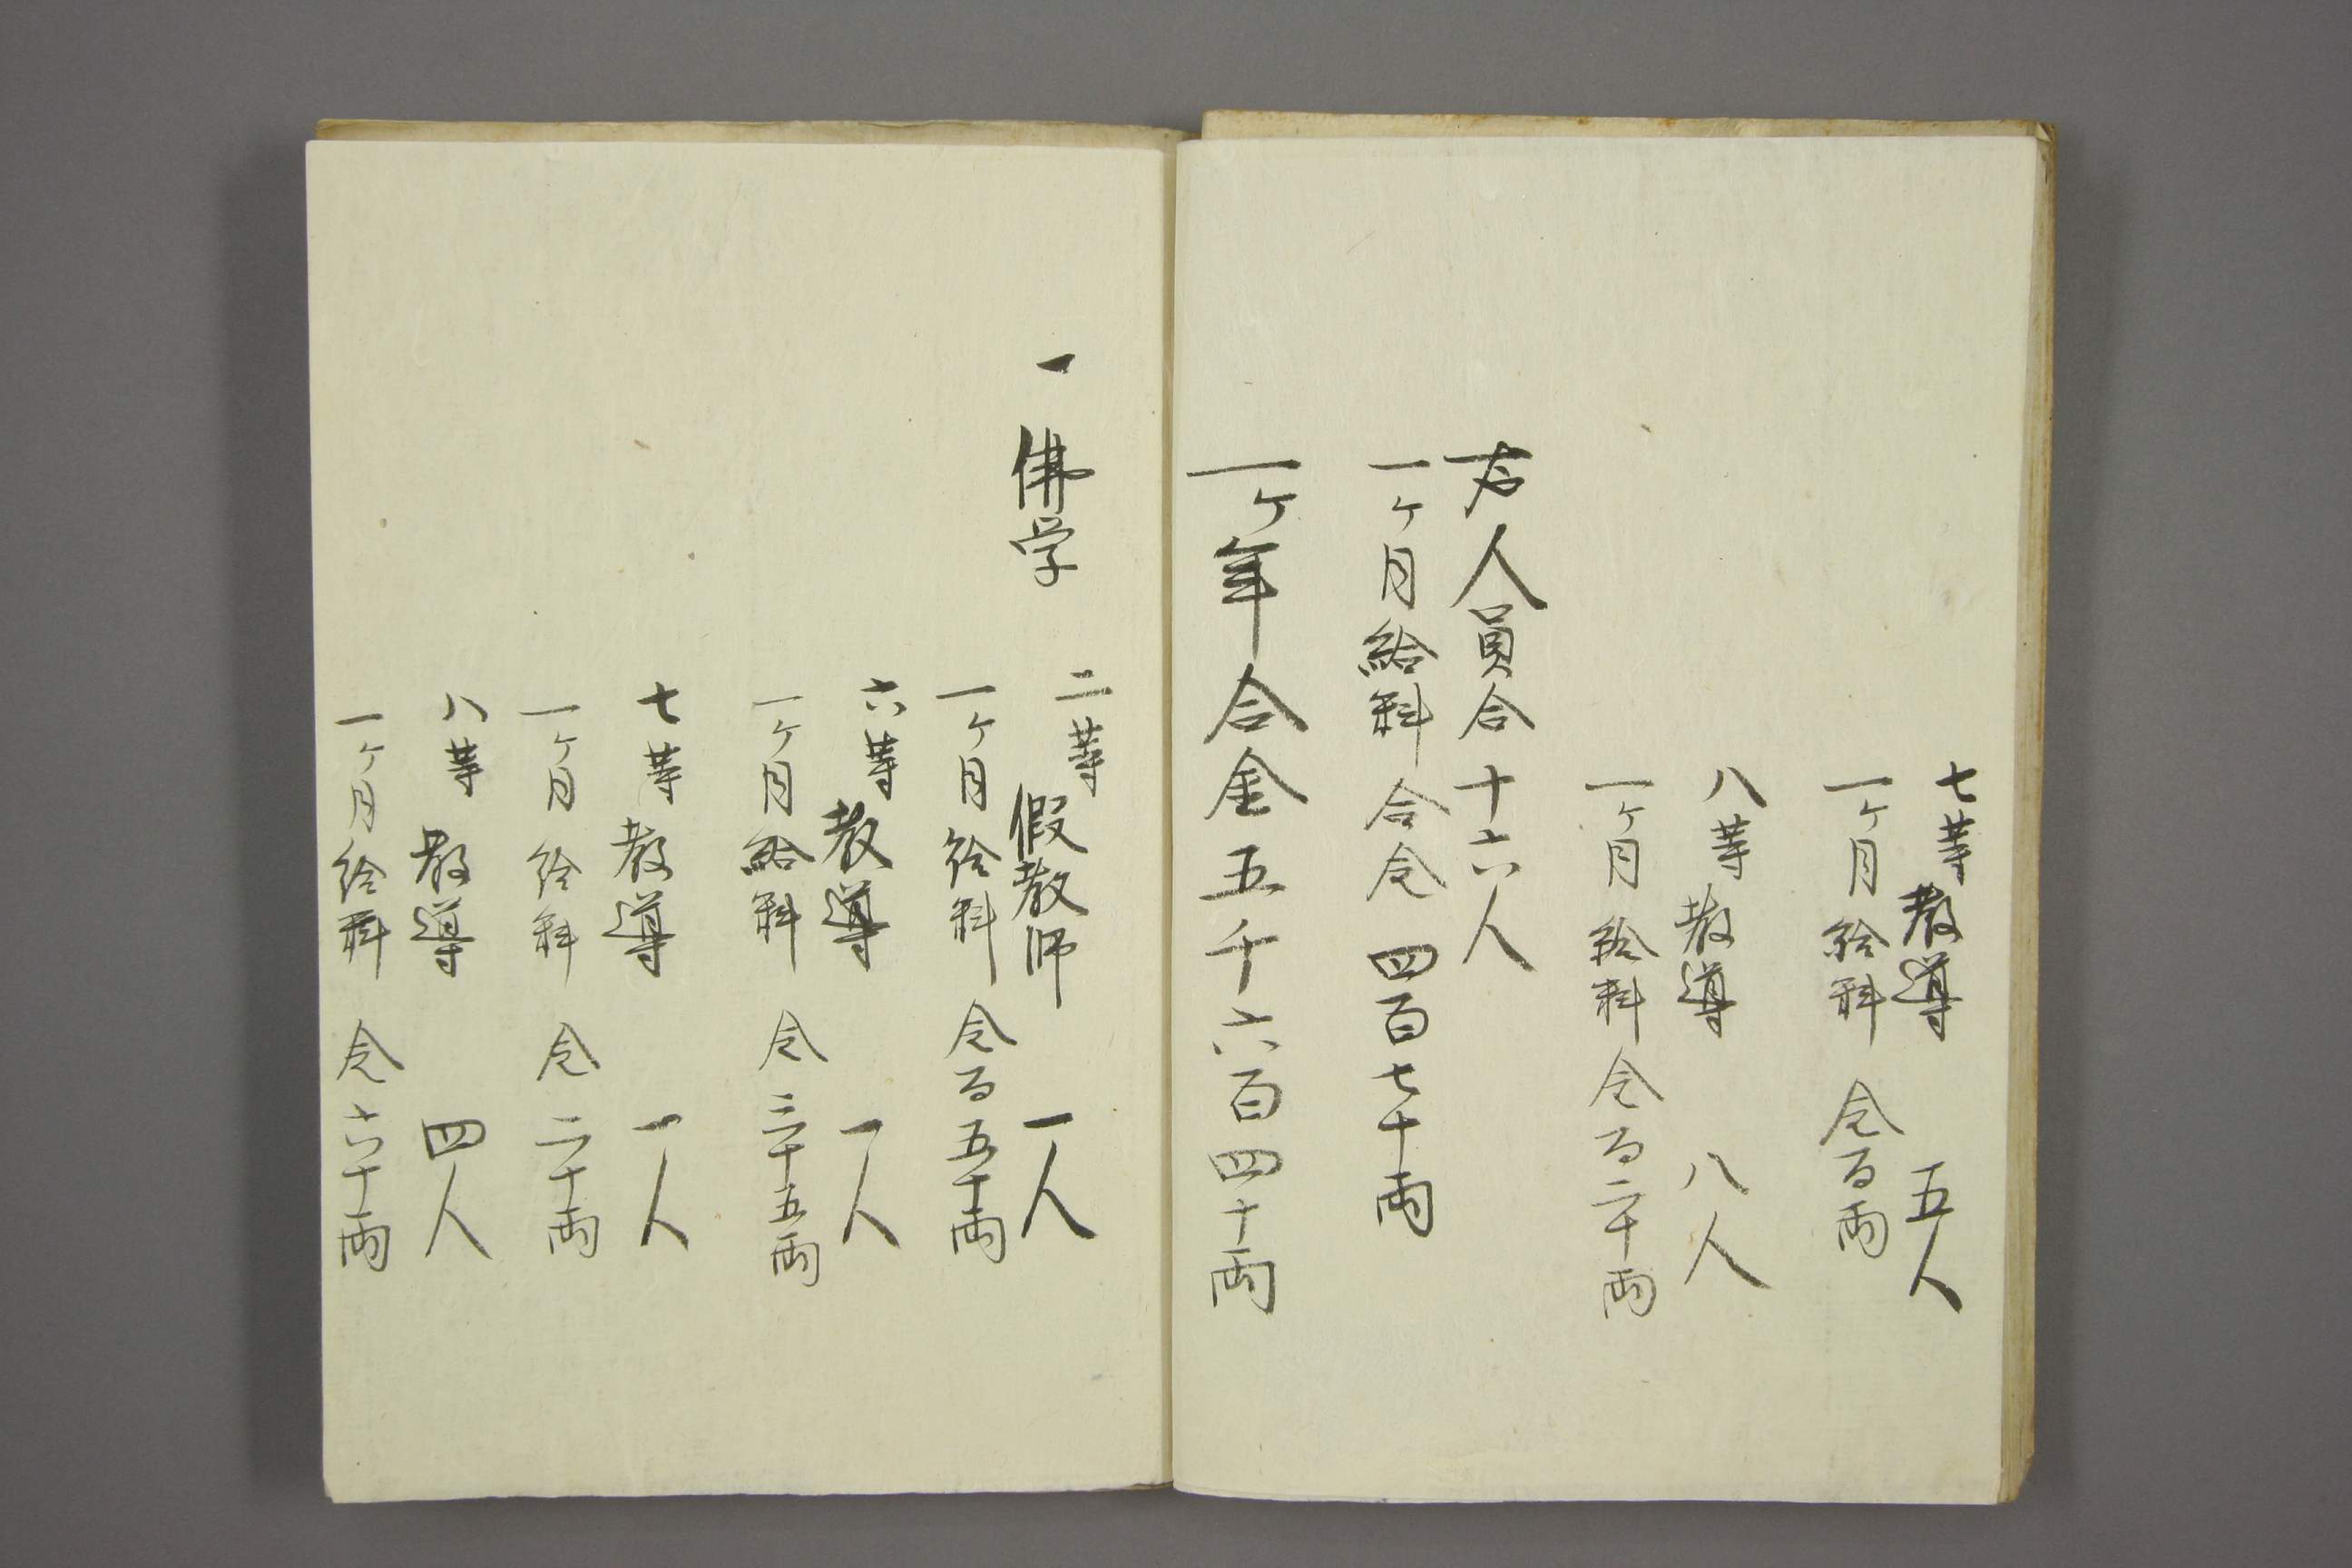 七等教導 五人
一ヶ月給料 金百両
八等教導 八人
一ヶ月給料金百二十両
右人員合十六人
一ヶ月給料合金四百七十両
一ヶ年合金五千六百四十両
一 佛学 二等假教師 一人
一ヶ月給料 金百五十両
六等教導 一人
一ヶ月給料 金三十五両
七等教導 一人
一ヶ月給料 金二十両
八等教導 四人
一ヶ月給料 金六十両